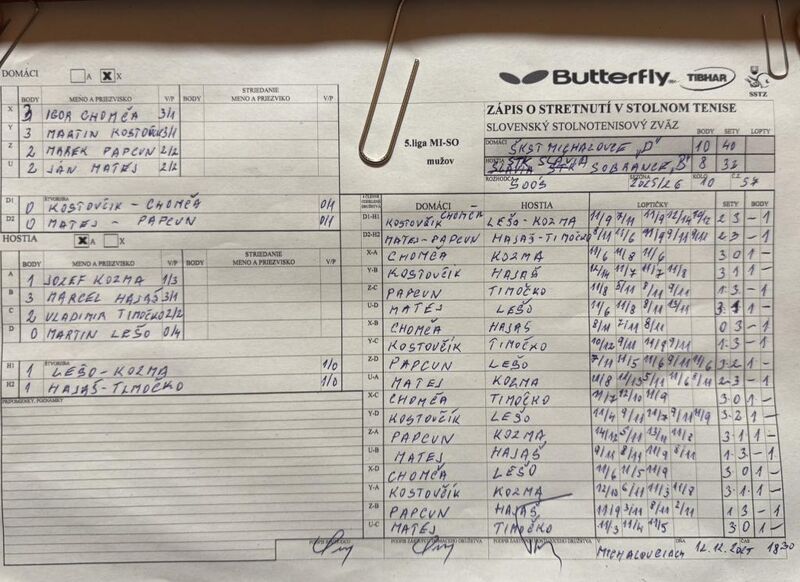 DOMÁCI A X
Butterfly TIBHAR
SSTZ
BODY MENO A PRIEZVISKO V/P BODY STRIEDANIE MENO A PRIEZVISKO V/P
X 3 IGOR CHOMČA 3/1
Y 3 MARTIN KOSTOVČIK 3/1
Z 2 MAREK PAPCUN 2/2
U 2 JÁN MATEJ 2/2
5.liga MI-SO
mužov
ZÁPIS O STRETNUTÍ V STOLNOM TENISE
SLOVENSKÝ STOLNOTENISOVÝ ZVÄZ
BODY SETY LOPTY
DOMÁCI ŠKST MICHALOVCE "D" 10 40
HOSTIA STK SLAVIA SOBRANCE "B" 8
ROZHODCA ŠOÓŠ SEZÓNA 2025/26 KOLO 10 Č.
ŠTVORHRA
D1 0 KOSTOVČIK - CHOMČA 0/1
D2 0 MATEJ - PAPCUN 0/1
HOSTIA A X
BODY MENO A PRIEZVISKO V/P BODY STRIEDANIE MENO A PRIEZVISKO V/P
A 1 JOZEF KOZMA 1/3
B 3 MARCEL HAJAŠ 3/1
C 2 VLADIMIR TIMOČKO 2/2
D 0 MARTIN LEŠO 0/4
ŠTVORHRA
H1 1 LEŠO - KOZMA 1/0
H2 1 HAJAŠ - TIMOČKO 1/0
PRIPOMIENKY, POZNÁMKY
DOMÁCI HOSTIA LOPTIČKY SETY BODY
D1-H1 KOSTOVČIK CHOMČA LEŠO - KOZMA 2 3 - 1
D2-H2 MATEJ - PAPCUN HAJAŠ - TIMOČKO 2 3 - 1
X-A CHOMČA KOZMA 11/6 11/8 11/6 3 0 1 -
Y-B KOSTOVČIK HAJAŠ 12/14 11/7 11/7 11/8 3 1 1 -
Z-C PAPCUN TIMOČKO 11/8 5/11 8/11 9/11 1 3 - 1
U-D MATEJ LEŠO 11/6 11/8 8/11 13/11 3 1 1 -
X-B CHOMČA HAJAŠ 8/11 7/11 8/11 0 3 - 1
Y-C KOSTOVČIK TIMOČKO 10/12 9/11 11/9 9/11 1 3 - 1
Z-D PAPCUN LEŠO 7/11 11/5 11/6 9/11 11/6 3 2 1 -
U-A MATEJ KOZMA 2 3 - 1
X-C CHOMČA TIMOČKO 11/7 12/10 11/9 3 0 1 -
Y-D KOSTOVČIK LEŠO 3 2 1 -
Z-A PAPCUN KOZMA 14/12 5/11 13/11 11/8 3 1 1 -
U-B MATEJ HAJAŠ 9/11 8/11 11/9 8/11 1 3 - 1
X-D CHOMČA LEŠO 11/6 11/5 11/9 3 0 1 -
Y-A KOSTOVČIK KOZMA 12/10 6/11 11/3 11/8 3 1 1 -
Z-B PAPCUN HAJAŠ 11/9 3/11 8/11 2/11 1 3 - 1
U-C MATEJ TIMOČKO 11/3 11/4 11/5 3 0 1 -
V MICHALOVCIACH DŇA 12.12.2025 ČAS 18:30